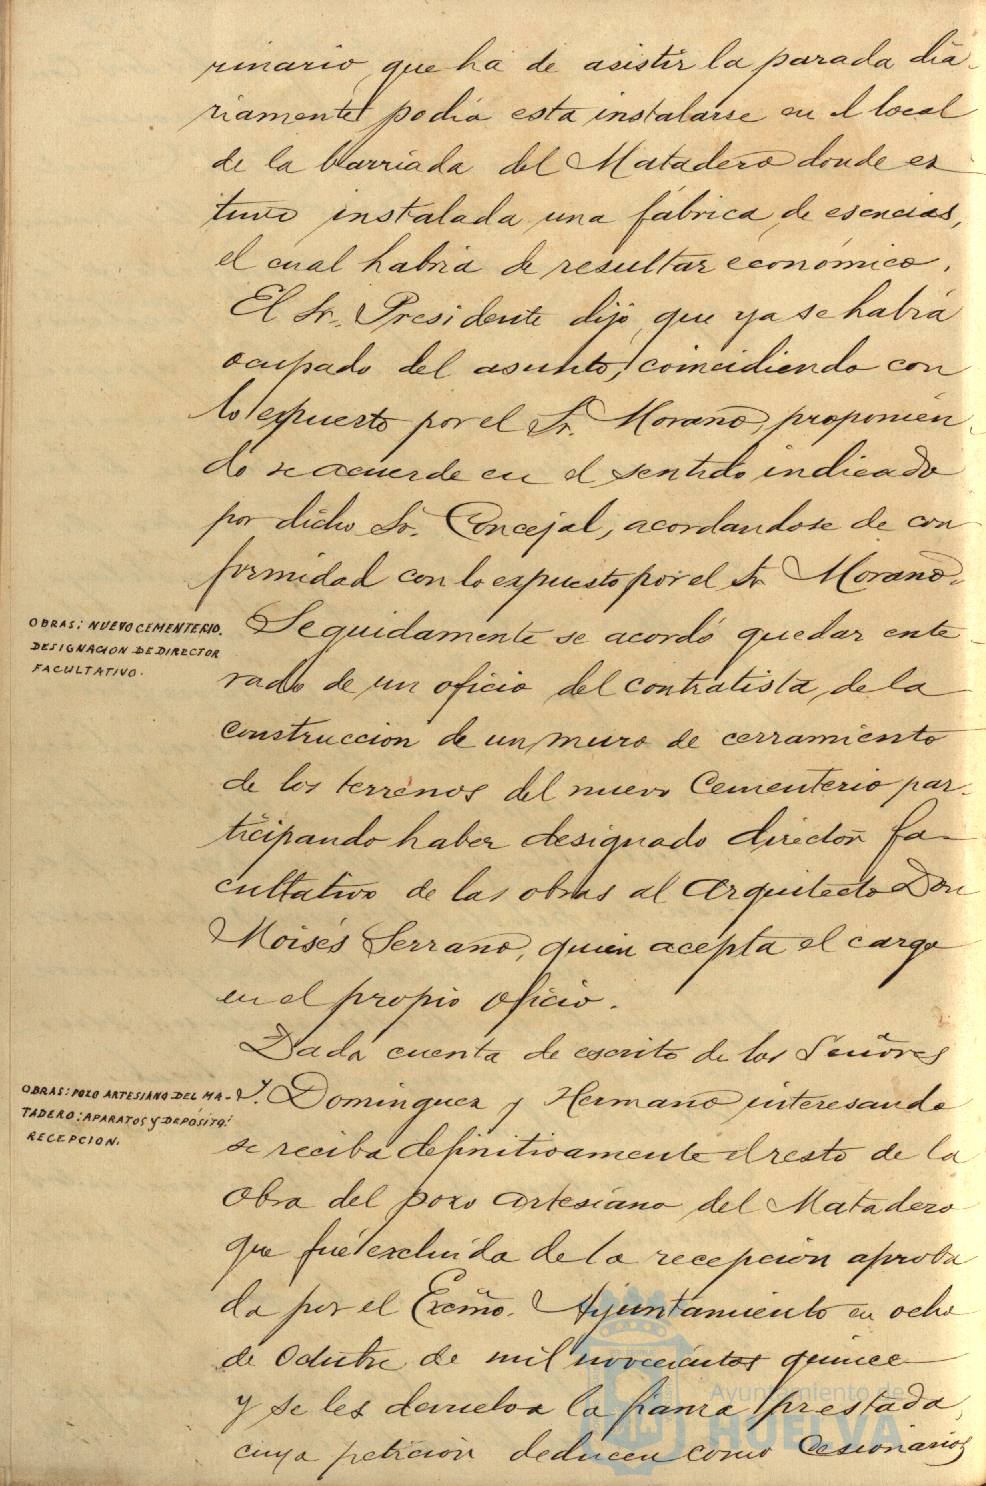 rinario que ha de asistir la parada dia-
riamente podia esta instalarse en el local
de la barriada del Matadero donde es
tuvo instalada una fábrica de esencias,
el cual habria de resultar económico.
El Sr. Presidente dijo que ya se habia
ocupado del asunto, coincidiendo con
lo expuesto por el Sr. Morano, proponien-
do se acuerde en el sentido indicado
por dicho Sr. Concejal, acordandose de con
formidad con lo expuesto por el Sr Morano.
OBRAS: NUEVO CEMENTERIO.
DESIGNACION DE DIRECTOR
FACULTATIVO.
Seguidamente se acordó quedar ente-
rado de un oficio del contratista de la
construccion de un muro de cerramiento
de los terrenos del nuevo Cementerio par-
ticipando haber designado director fa-
cultativo de las obras al Arquitecto Don
Moisés Serrano, quien acepta el cargo
en el propio oficio.
Dada cuenta de escrito de los Señores
OBRAS: POZO ARTESIANO DEL MA-
TADERO: APARATOS Y DEPÓSITO:
RECEPCION.
Y. Dominguez y Hermano interesando
se reciba definitivamente el resto de la
obra del pozo artesiano del Matadero
que fué excluida de la recepcion aproba
da por el Excmo. Ayuntamiento en ocho
de Octubre de mil novecientos quince
y se les devuelva la fianza prestada,
cuya peticion deducen como Cesionarios
Ayuntamiento de
HUELVA